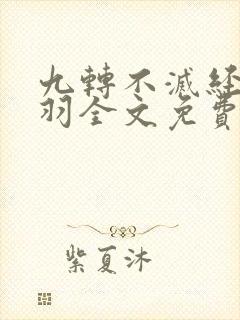 九轉不滅經
羽全文免費
紫夏沐